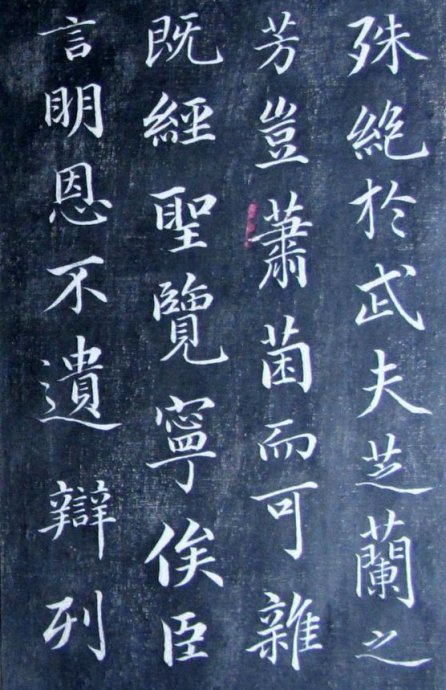 殊絶於武夫芝蘭之
芳豈蕭茵而可雜
既經聖覽寧俟臣
言明恩不遺辯列